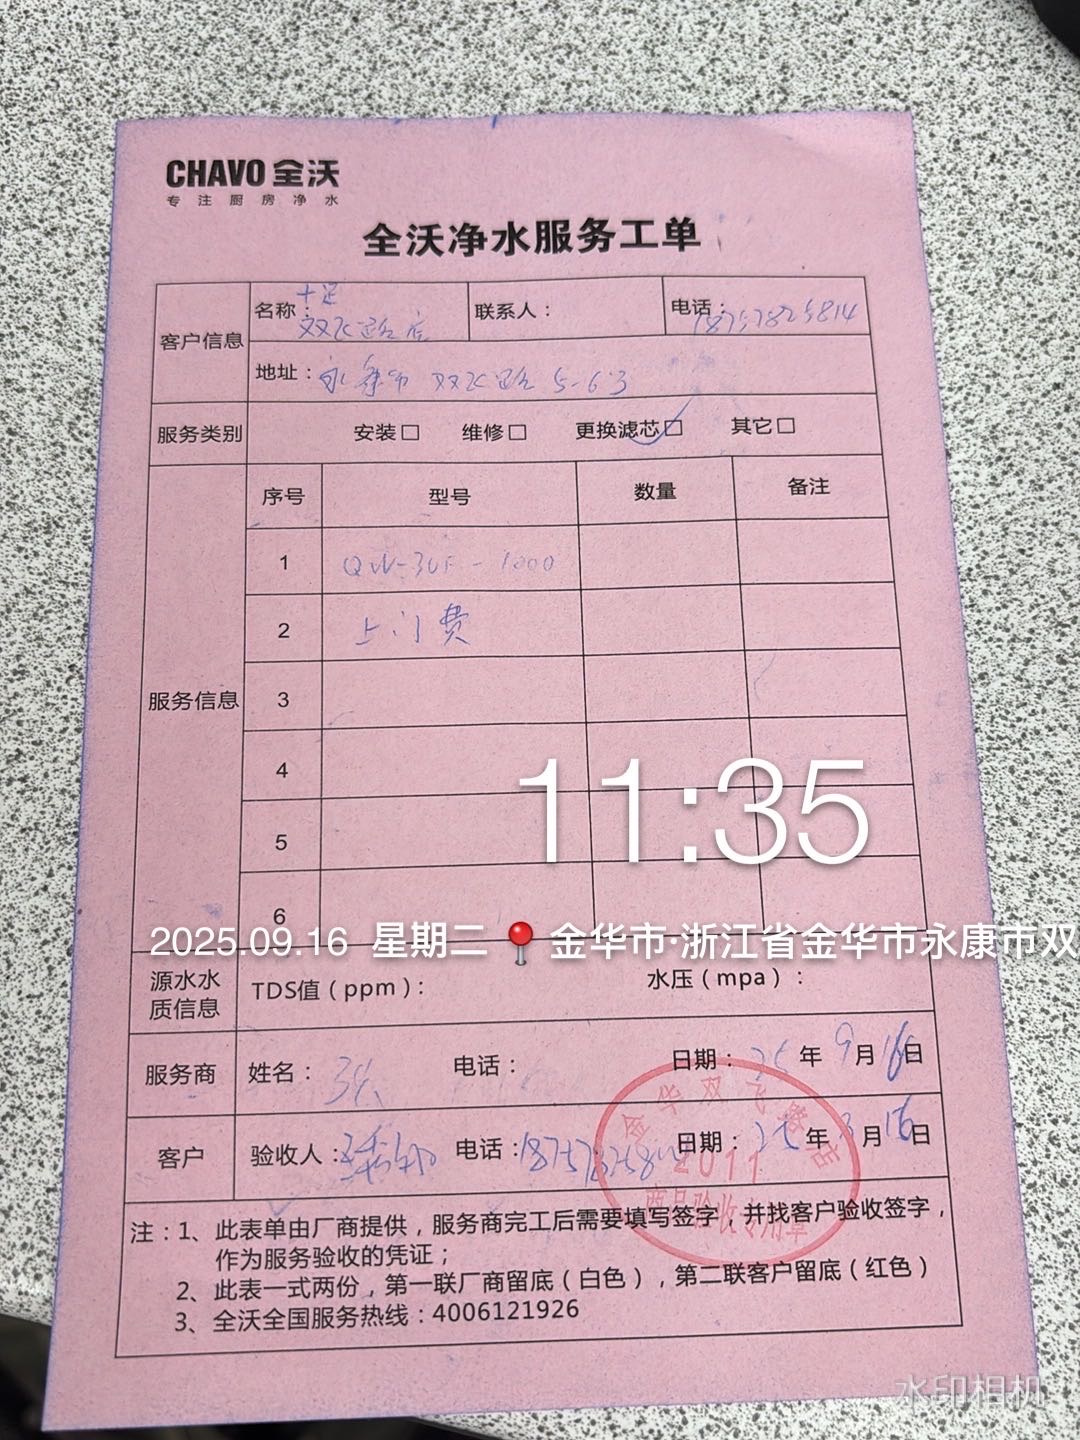 CHAVO 全沃
专注厨房净水
全沃净水服务工单
客户信息
名称：十足
双飞路店
联系人：
电话：18757825814
地址：永康市 双飞路 5-63
服务类别
安装□ 维修□ 更换滤芯□ 其它□
服务信息
序号 型号 数量 备注
1 QW-3UF-1000
2 上门费
3
4
5
6
11:35
2025.09.16 星期二 金华市·浙江省金华市永康市双
源水水质信息
TDS值（ppm）：
水压（mpa）：
服务商
姓名：
电话：
日期：25年9月16日
客户
验收人：
电话：
日期：25年 月16日
金华双飞路店
2011
商品验收专用章
注：1、此表单由厂商提供，服务商完工后需要填写签字，并找客户验收签字，
作为服务验收的凭证；
2、此表一式两份，第一联厂商留底（白色），第二联客户留底（红色）
3、全沃全国服务热线：4006121926
水印相机